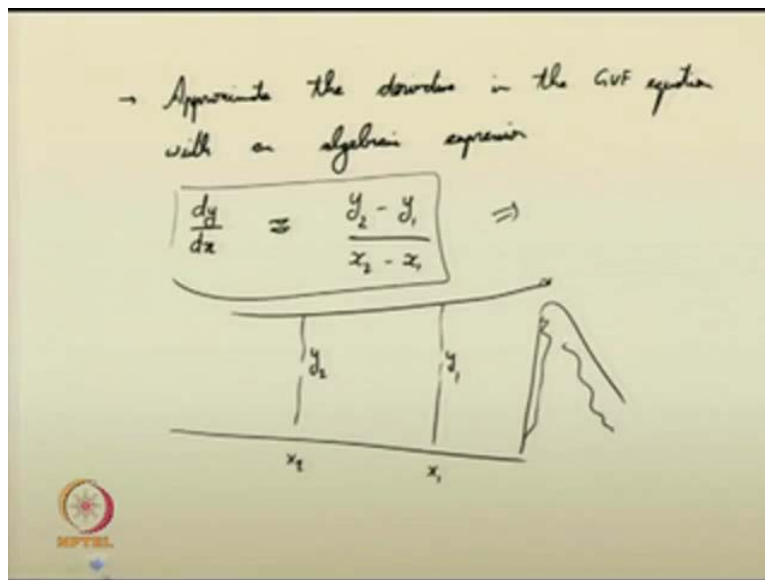 → Approximate the derivative in the GVF equation
with an algebraic expression
dy/dx = (y₂ - y₁)/(x₂ - x₁) ⇒
y₂ y₁
x₂ x₁
NPTEL